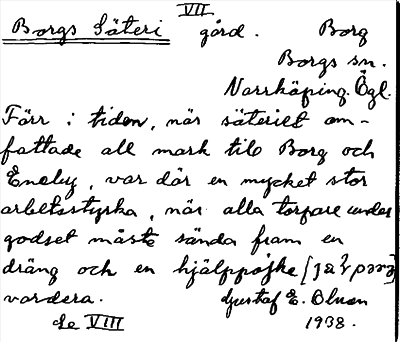 VII
Borgs Säteri gård. Borg
Borgs sn.
Norrköping. Ögl.
Förr i tiden, när säteriet om-
fattade all mark till Borg och
Eneby, var där en mycket stor
arbetsstyrka, när alla torpare under
godset måste sända fram en
dräng och en hjälppojke
vardera. Gustaf E. Olsson
se VIII 1938.